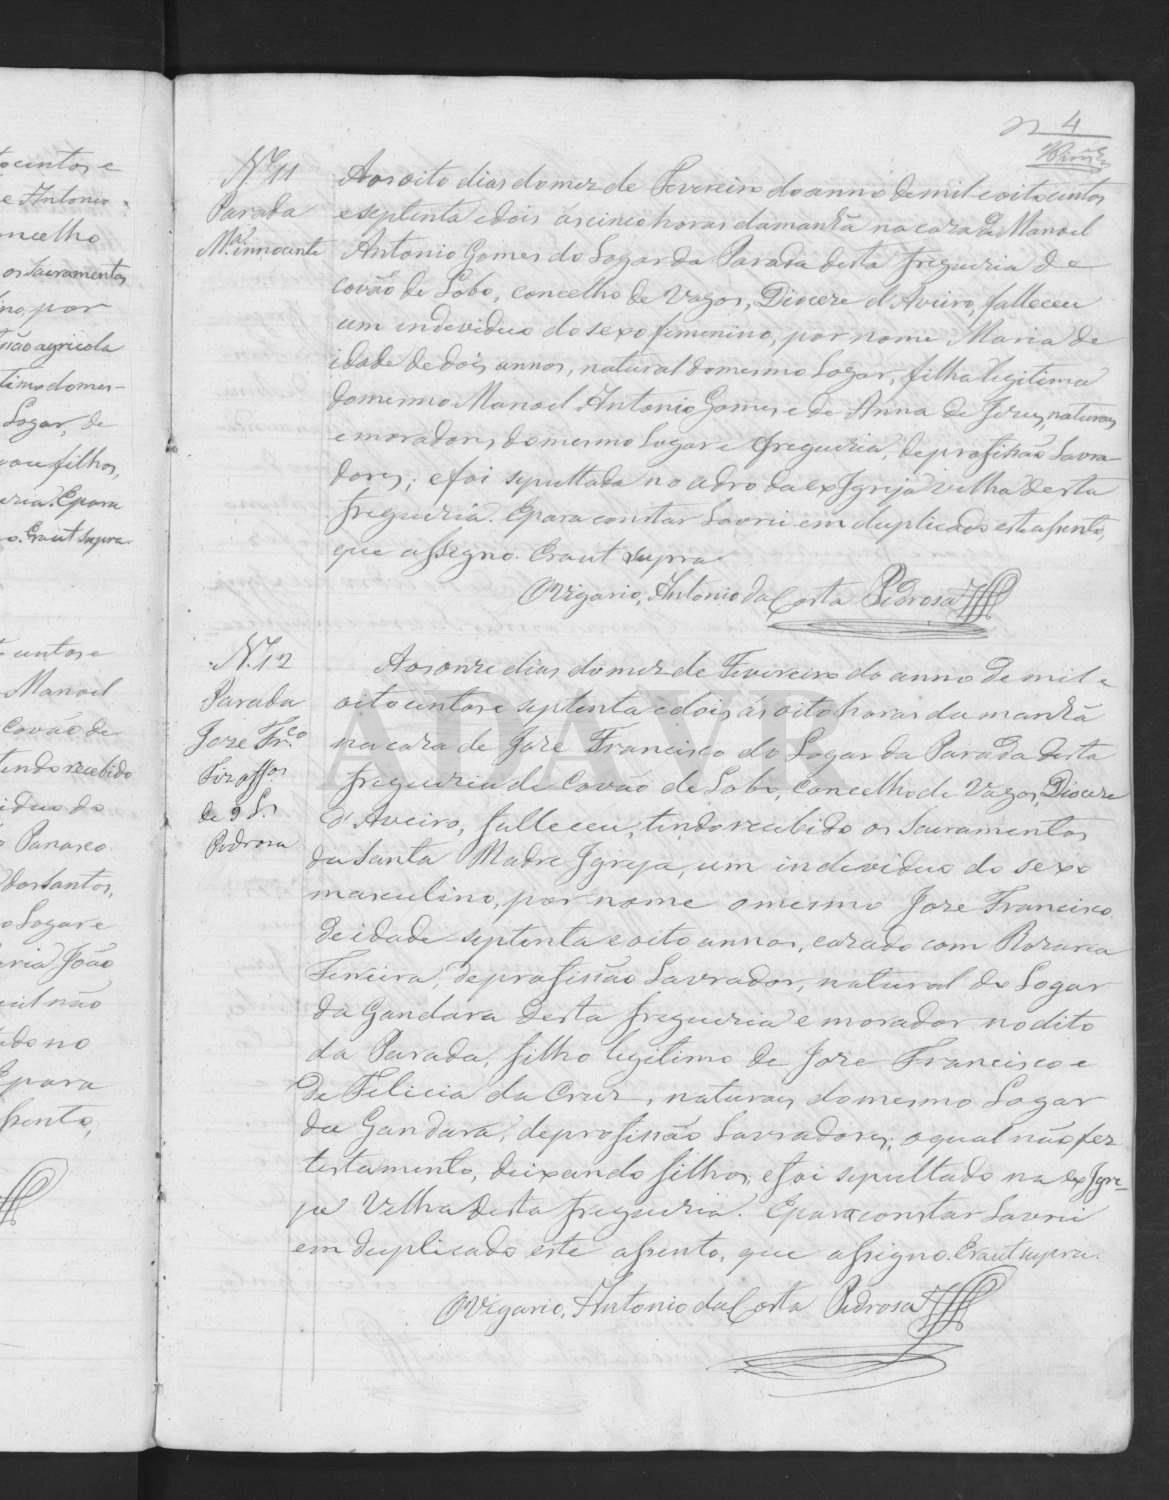 4
N.º 11
Parada
M.ª innocente
Aos oito dias do mez de Fevereiro do anno de mil e oitocentos
e septenta e dois ás cinco horas da manhã na caza de Manoel
Antonio Gomes do Logar da Parada desta freguezia de
Covão de Lobo, concelho de Vagos, Diocese d'Aveiro, falleceu
um individuo do sexo femenino, por nome Maria de
idade de dois annos, natural do mesmo Logar, filha legitima
do mesmo Manoel Antonio Gomes e de Anna de Jesus, naturaes
e moradores do mesmo Lugar e freguezia, de profissão Lavra-
dores; e foi sepultada no adro da ex Igreja velha desta
freguezia. E para constar Lavrei em duplicado este assento,
que assigno. Era ut supra
O Vigario, Antonio da Costa Pedrosa
N.º 12
Parada
Joze Fr.co
Fiz off.os
de 9 L.
Pedrosa
Aos onze dias do mez de Fevereiro do anno de mil e
oitocentos e septenta e dois ás oito horas da manhã
na caza de Joze Francisco do Logar da Parada desta
freguezia de Covão de Lobo, concelho de Vagos, Diocese
d'Aveiro, falleceu, tendo recebido os Sacramentos
da Santa Madre Igreja, um individuo do sexo
masculino, por nome o mesmo Joze Francisco
de idade septenta e oito annos, cazado com Rozaria
Ferreira, de profissão Lavrador, natural do Logar
da Gandara desta freguezia e morador no dito
da Parada, filho legitimo de Joze Francisco e
de Felicia da Cruz, naturaes do mesmo Logar
da Gandara, de profissão Lavradores; o qual não fez
testamento, deixando filhos, e foi sepultado na ex Igre-
ja Velha desta freguezia. E para constar Lavrei
em duplicado este assento, que assigno. Era ut supra.
O Vigario, Antonio da Costa Pedrosa
ADAVR